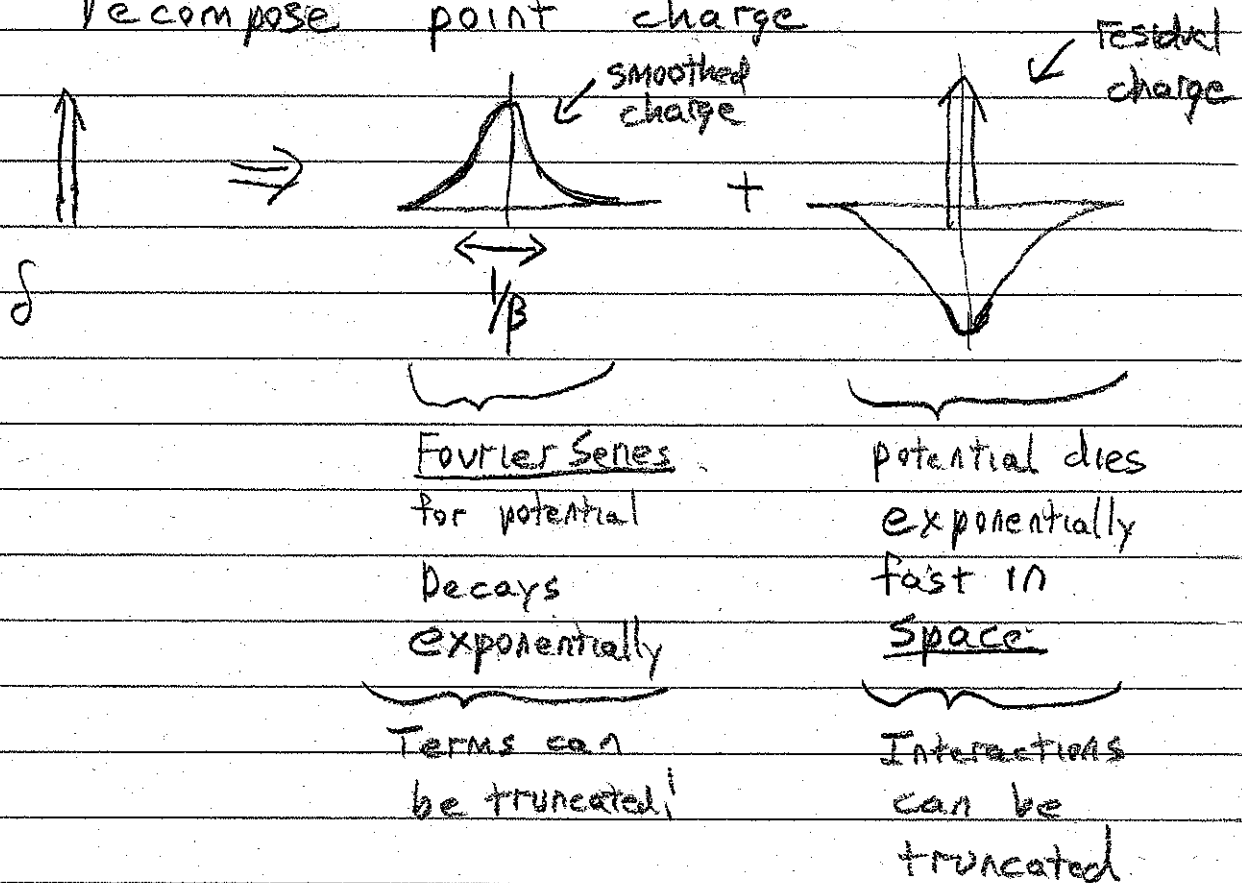 Decompose point charge
smoothed
charge
residual
charge
δ
⇒
+
1/β
Fourier Series
for potential
Decays
exponentially
Terms can
be truncated!
potential dies
exponentially
fast in
Space
Interactions
can be
truncated